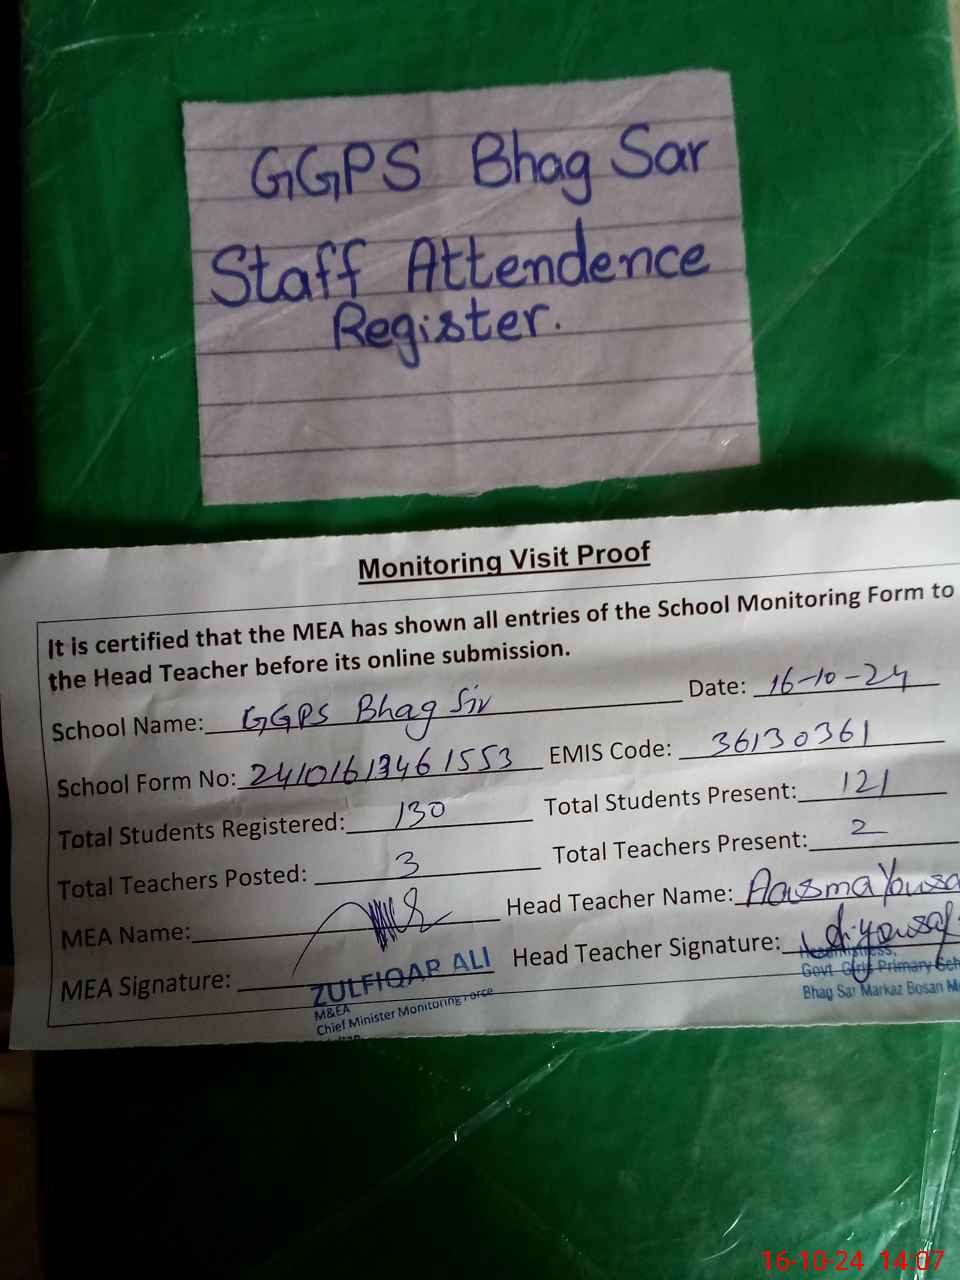 GGPS Bhag Sar
Staff Attendence
Register.
Monitoring Visit Proof
It is certified that the MEA has shown all entries of the School Monitoring Form to
the Head Teacher before its online submission.
School Name: GGPS Bhag Sir Date: 16-10-24
School Form No: 24101613461553 EMIS Code: 36130361
Total Students Registered: 130 Total Students Present: 121
Total Teachers Posted: 3 Total Teachers Present: 2
MEA Name: Head Teacher Name:
MEA Signature: Head Teacher Signature:
ZULFIQAR ALI
M&EA
Chief Minister Monitoring Force
Headmistress,
Govt. Girls Primary
Bhag Sar Markaz Bosan
16-10-24 14:07